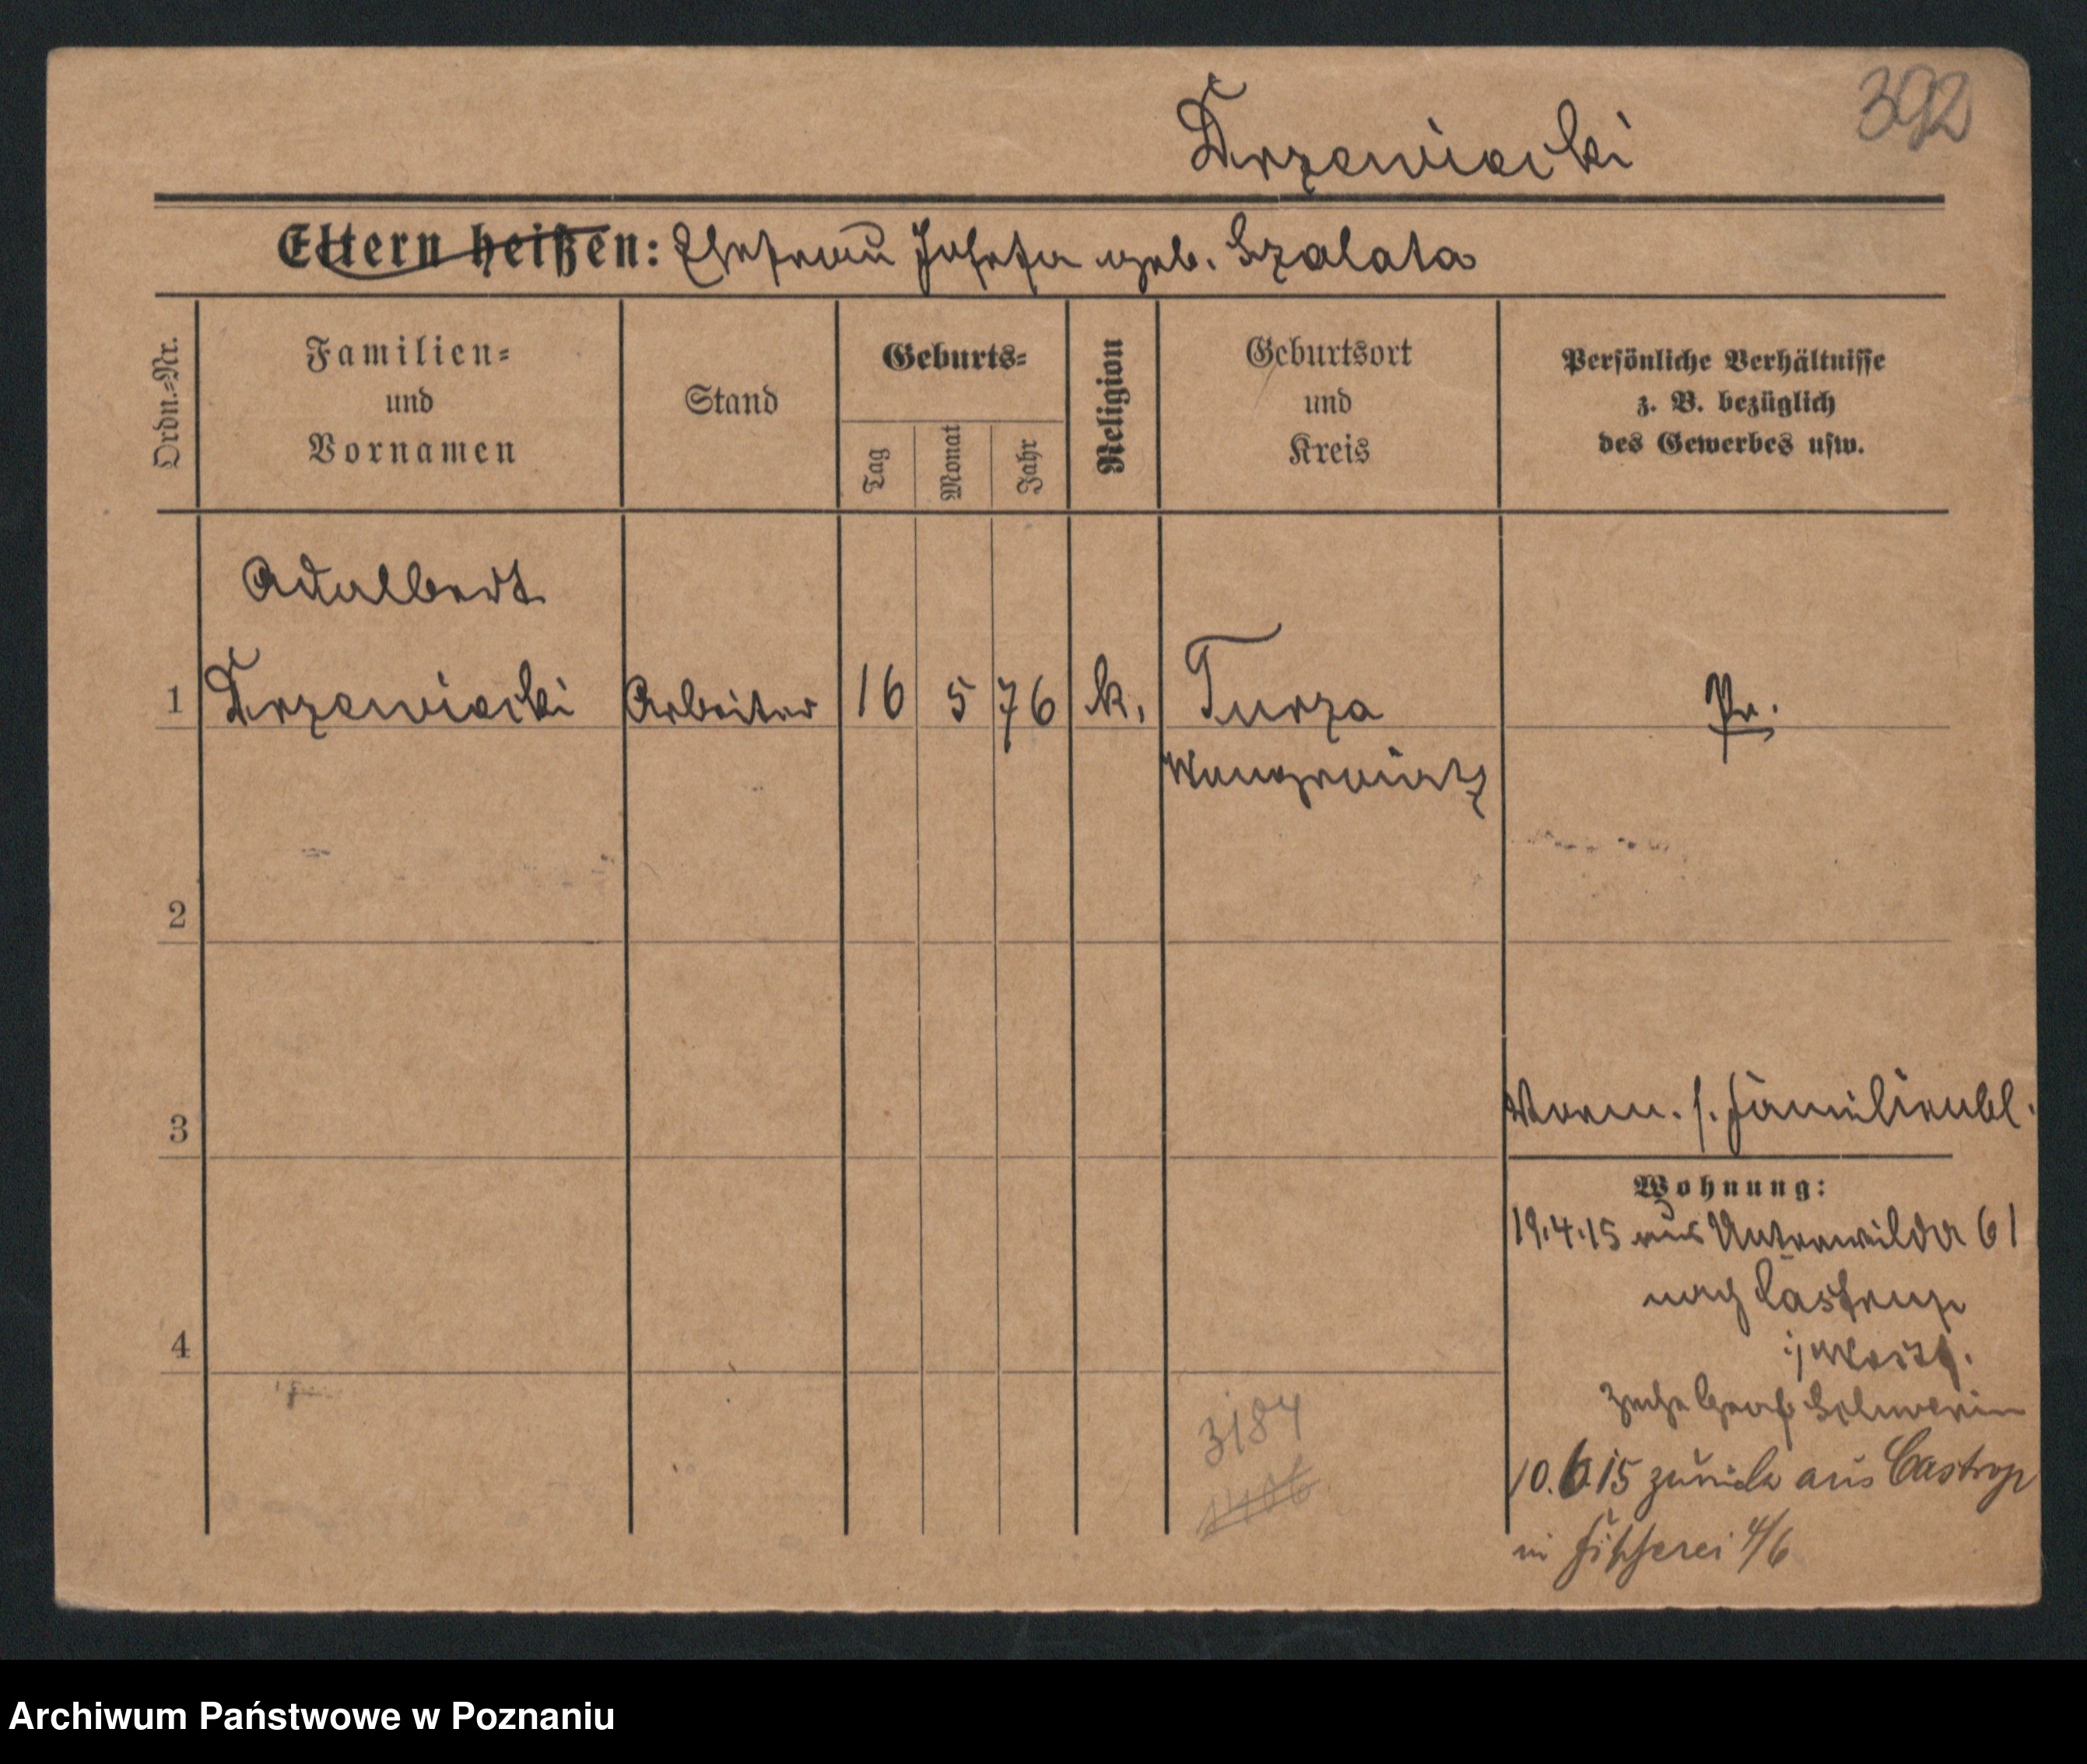 392
Drzewiecki
Eltern heißen: Ehefrau Josefa geb. Szalata
Ordn.=Nr.
Familien=
und
Vornamen
Stand
Geburts=
Tag
Monat
Jahr
Religion
Geburtsort
und
Kreis
Persönliche Verhältnisse
z. B. bezüglich
des Gewerbes usw.
Adalbert
1 Drzewiecki Arbeiter 16 5 76 k. Turza Pr.
Wongrowitz
2
3
Verm. s. Familienbl.
Wohnung:
19.4.15 aus Unterwilda 61
nach Castrop
i/Westf.
4
Zeche Graf Schwerin
3184
1406
10.6.15 zurück aus Castrop
in Fischerei 4/6
Archiwum Państwowe w Poznaniu